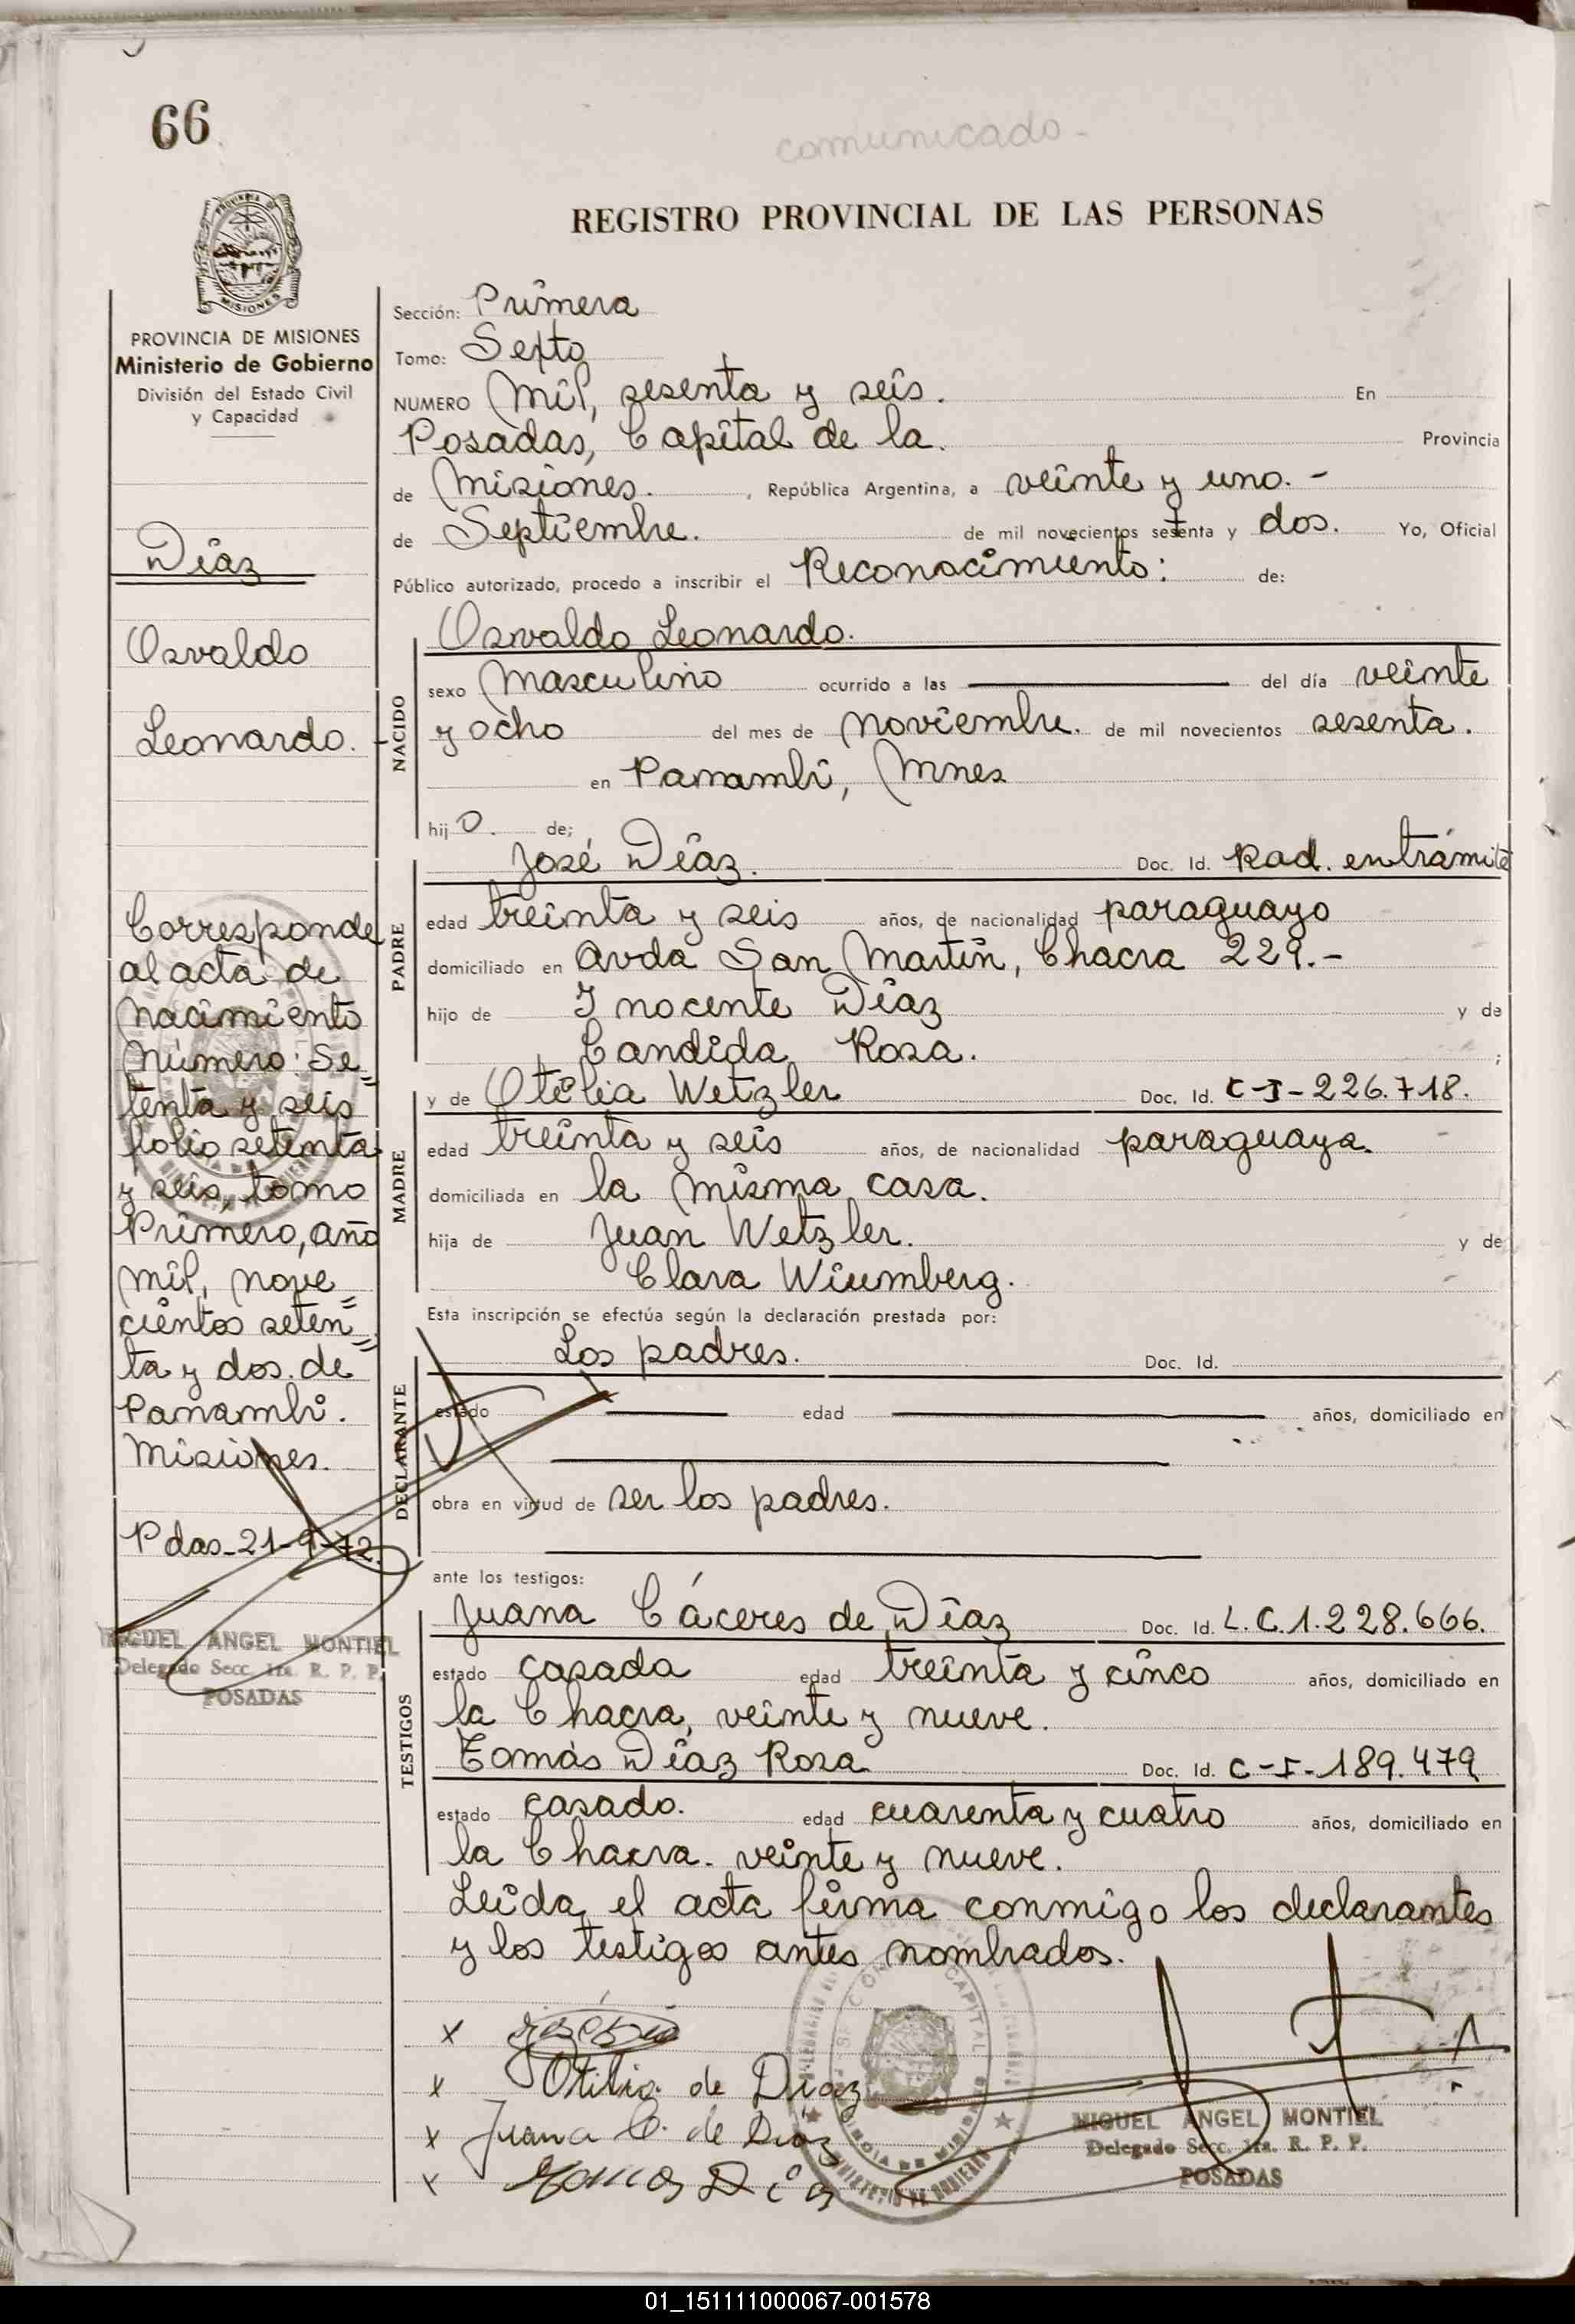 66
comunicado -
REGISTRO PROVINCIAL DE LAS PERSONAS
MISIONES
PROVINCIA DE MISIONES
Ministerio de Gobierno
División del Estado Civil
y Capacidad
Díaz
Osvaldo
Leonardo.
Corresponde
al acta de
nacimiento
número: Se=
tenta y seis
folio setenta
y seis, tomo
Primero, año
mil, nove=
cientos seten=
ta y dos. de
Panambí.
Misiones.
Pdas-21-9-72.
MIGUEL ANGEL MONTIEL
Delegado Secc. 1ra. R. P. P.
POSADAS
Sección: Primera
Tomo: Sexto
NUMERO Mil, sesenta y seis. En
Posadas, Capital de la. Provincia
de Misiones. , República Argentina, a veinte y uno. -
de Septiembre. de mil novecientos setenta y dos. Yo, Oficial
Público autorizado, procedo a inscribir el Reconocimiento: de:
NACIDO
Osvaldo Leonardo.
sexo Masculino ocurrido a las del día veinte
y ocho del mes de noviembre. de mil novecientos sesenta.
en Panambí, Mnes
hijo. de;
PADRE
José Díaz. Doc. Id. Rad. en trámite
edad treinta y seis años, de nacionalidad paraguayo
domiciliado en Avda San Martín, Chacra 229.-
hijo de Inocente Díaz y de
Candida Rosa. ;
MADRE
y de Otilia Wetzler Doc. Id. C-I-226.718.
edad treinta y seis años, de nacionalidad paraguaya.
domiciliada en la misma casa.
hija de Juan Wetzler. y de
Clara Wiumberg.
Esta inscripción se efectúa según la declaración prestada por:
DECLARANTE
Los padres. Doc. Id.
estado edad años, domiciliado en
obra en virtud de ser los padres.
ante los testigos:
TESTIGOS
Juana Cáceres de Díaz Doc. Id. L.C.1.228.666.
estado casada edad treinta y cinco años, domiciliado en
la Chacra, veinte y nueve.
Tomás Díaz Rosa Doc. Id. C-I-189.479
estado casado. edad cuarenta y cuatro años, domiciliado en
la Chacra. veinte y nueve.
Leída el acta firma conmigo los declarantes
y los testigos antes nombrados.
x
x Otilia de Díaz
x Juana C. de Díaz
x Tomas Díaz
MIGUEL ANGEL MONTIEL
Delegado Secc. 1ra. R. P. P.
POSADAS
01_151111000067-001578